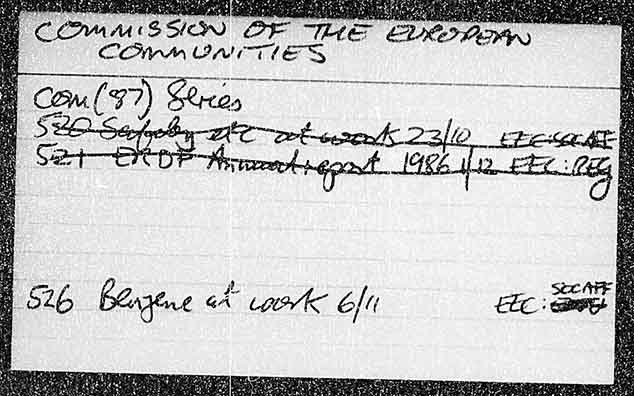 COMMISSION OF THE EUROPEAN
COMMUNITIES
COM('87) Series
520 Safety etc at work 23/10 EEC:SOCAFF
521 ERDF Annual report 1986 1/12 EEC:REG
SOCAFF
526 Benzene at work 6/11 EEC: